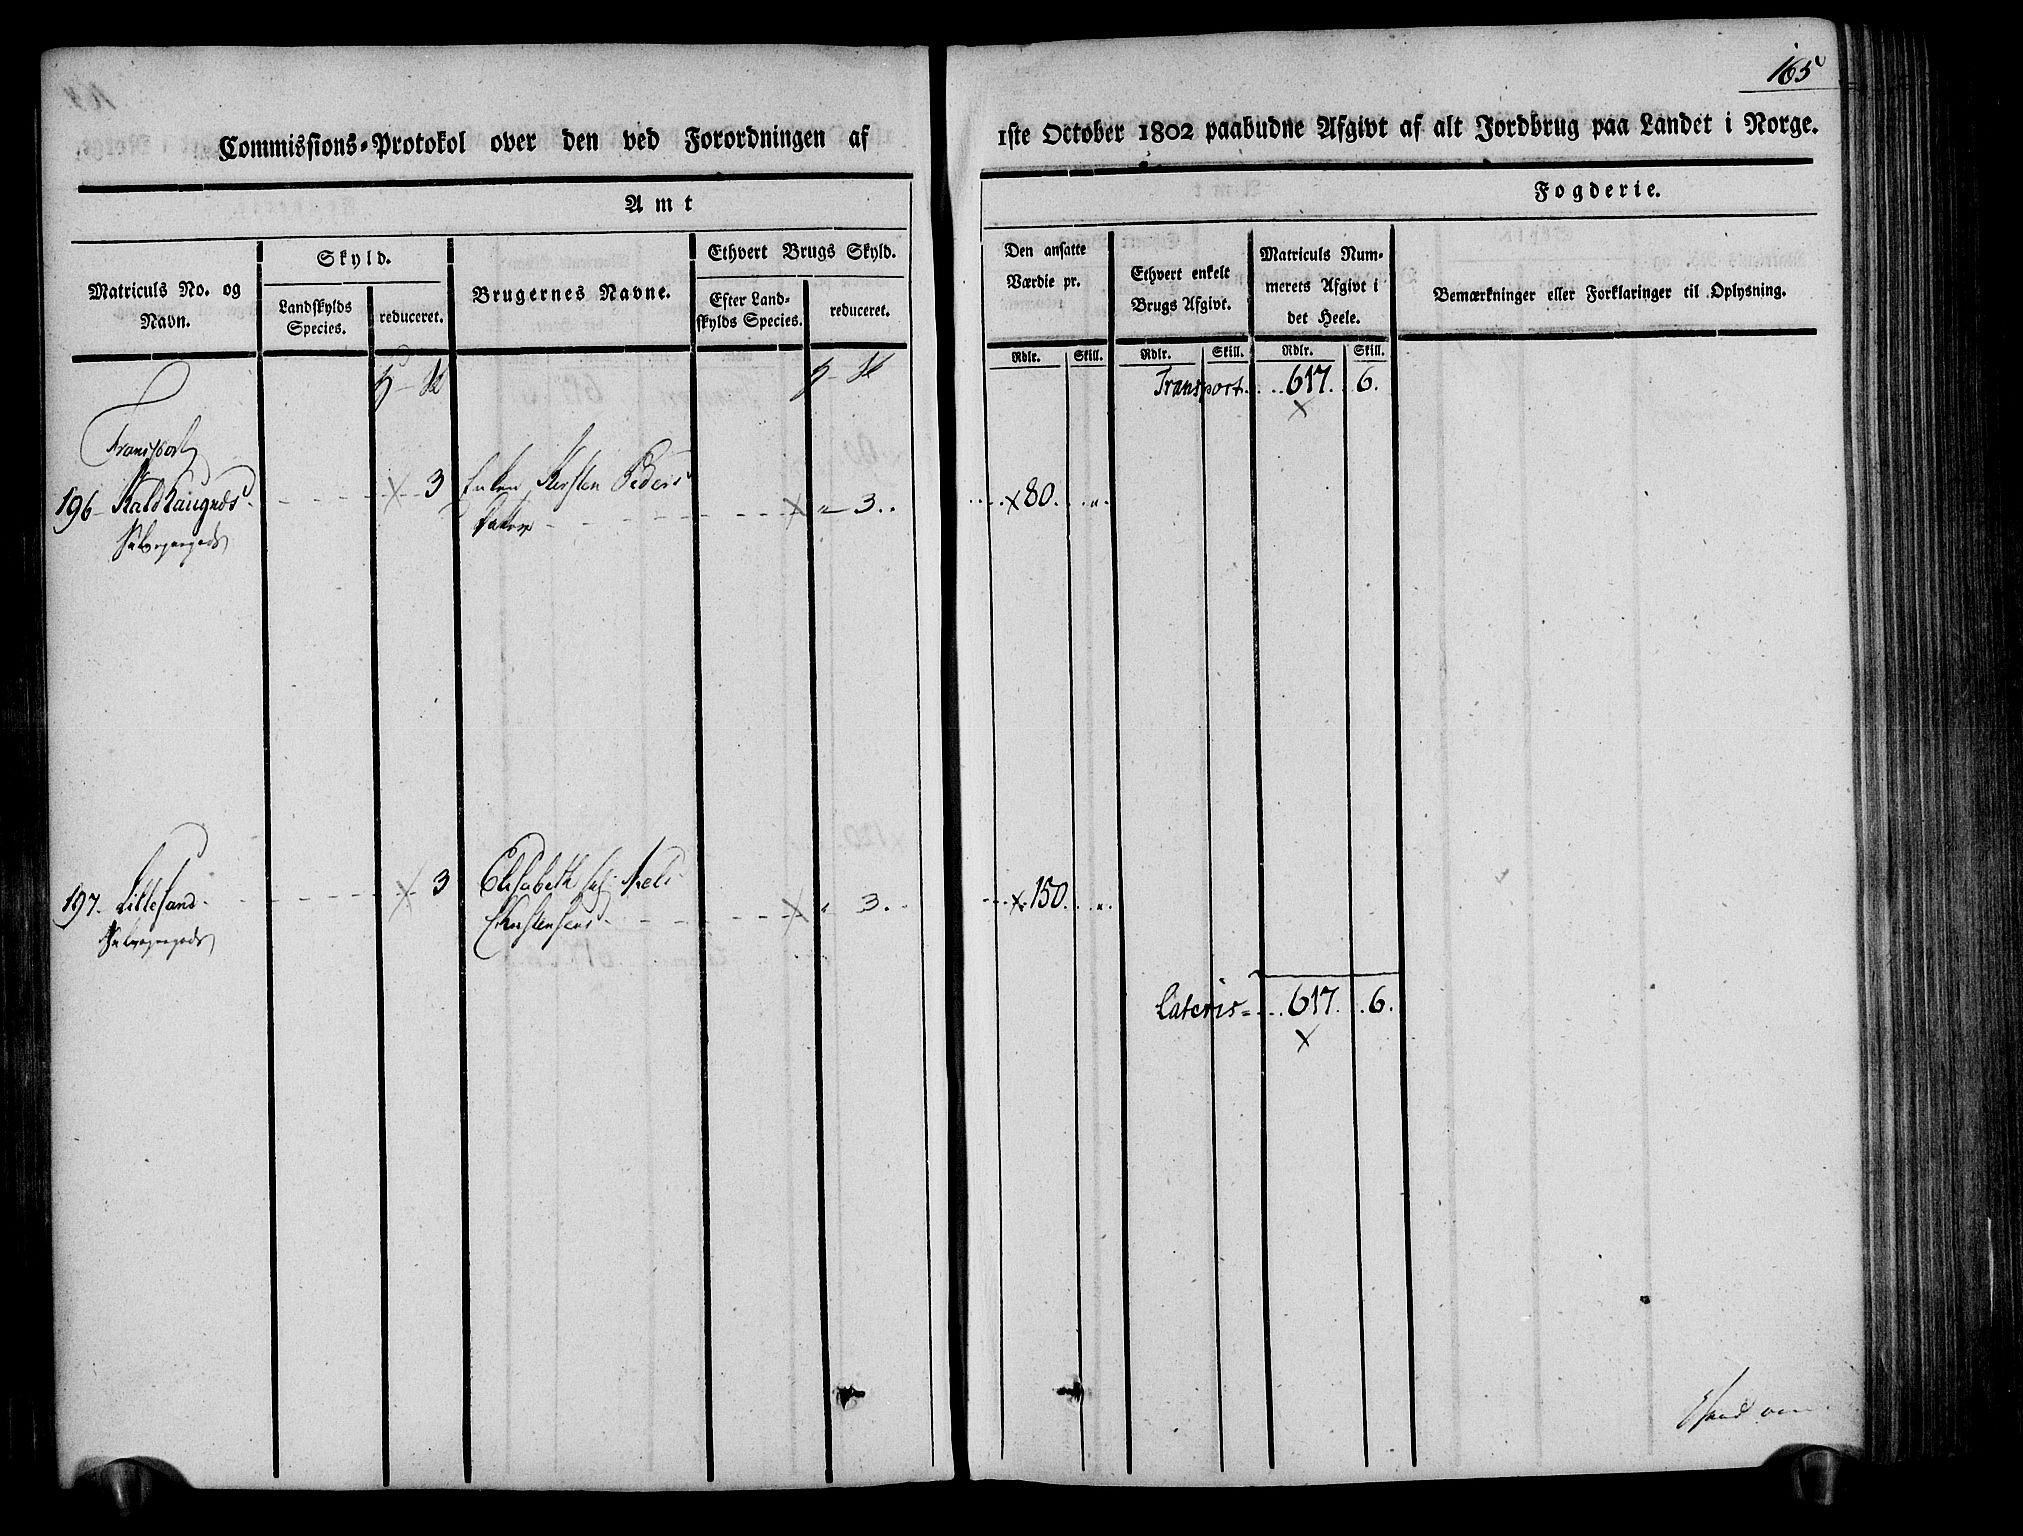 165
Commissions-Protokol over den ved Forordningen af
1ste October 1802 paabudne Afgivt af alt Jordbrug paa Landet i Norge.
Amt
Fogderie.
Matriculs No. og Navn.
Skyld.
Landskylds Species.
reduceret.
Brugernes Navne.
Ethvert Brugs Skyld.
Efter Landskylds Species.
reduceret.
Den ansatte Værdie pr.
Rdlr. Skill.
Ethvert enkelt Brugs Afgivt.
Rdlr. Skill.
Matriculs Nummerets Afgivt i det Heele.
Rdlr. Skill.
Bemærkninger eller Forklaringer til Oplysning.
Transport 617. 6.
Transport
196 3 Enken Kersten Peders 3. 80.
197. Lillesand 3 Elisabeth sal. Niels 3. 150.
Christensens
Lateris 617. 6.